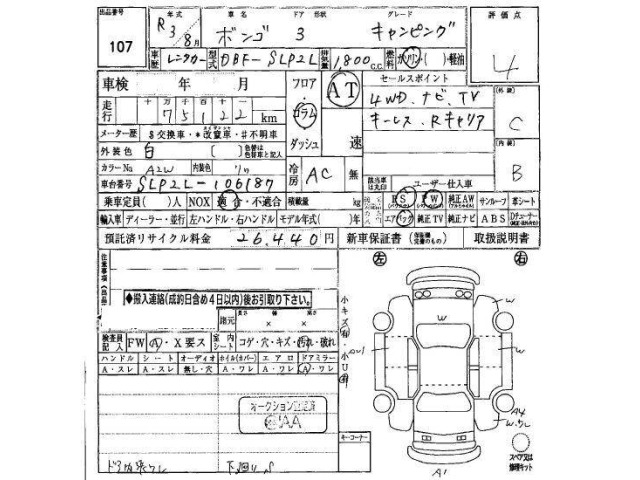 出品番号 107
年式 R3/8月 車名 ボンゴ ドア形状 3 グレード キャンピング 評価点 4
車歴 レンタカー 型式 DBF-SLP2L 排気量 1,800 c.c. 燃料 ガソリン( )軽油
車検 年 月 フロア AT セールスポイント
走行 十万 万 千 百 十 一 75122 km コラム 4WD、ナビ、TV (外装) C
メーター歴 $交換車・*改竄車・#不明車 キーレス、Rキャリア
外装色 白 ( ) ダッシュ 速 (内装) B
カラーNo A2W 内装色 冷房 AC 無
車台番号 SLP2L-106187 ユーザー仕入車
乗車定員( )人 NOX 適合・不適合 積載量 kg PS PW 純正AW サンルーフ 革シート
輸入車 ディーラー・並行 左ハンドル・右ハンドル モデル年式( )年 エアバック 純正TV 純正ナビ ABS Dチューナー
預託済リサイクル料金 26,440円 新車保証書 取扱説明書
注意事項 左 右
◆搬入連絡(成約日含め4日以内)後お引取り下さい。
諸元 長さ 幅 高さ × ×
小キズ有・小U有
検査員記入 FW A・X要ス 室内シート コゲ・穴・キズ・汚れ・破れ
ハンドル シート オーディオ ホイル(カバー) エアロ ドアミラー
A・スレ A・スレ 無し・穴 A・ワレ A・ワレ A・ワレ
W
W
A1
オークション
A4
W、ワレ
キーコーナー
スペア又は修理キット
下廻りS
A1